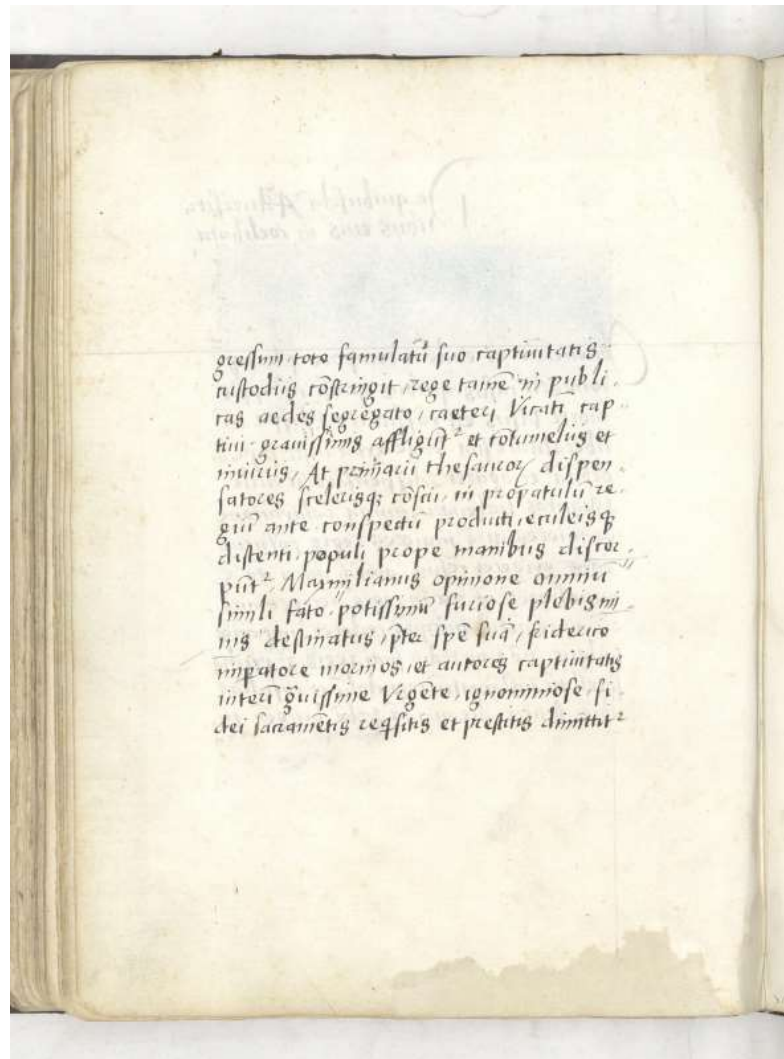 gressum toto famulatū suo captiuitatis
custodiis cōstringit, rege tamē in publi.
cas aedes segregato, caeteri Vicatī cap
tiui grauissimis affligūt² et cōtumeliis et
iniuriis, At primarii thesauroꝝ dispen.
satores scelerisqꝫ cōscii, in propatulū re.
giū ante conspectū producti, eculeisqꝫ
distenti, populi prope manibus discer
pūt², Maximilianus opinione omniū
simili fato potissimū furiose plebis mi.
nis destinatus, p̄ter spē suā, friderico
imꝑatore morinos, et autores captiuitatis
interī gͣuissime Vrgēte, ignominiose fi.
dei sacramētis reqͥsitis et prestitis dimittit²